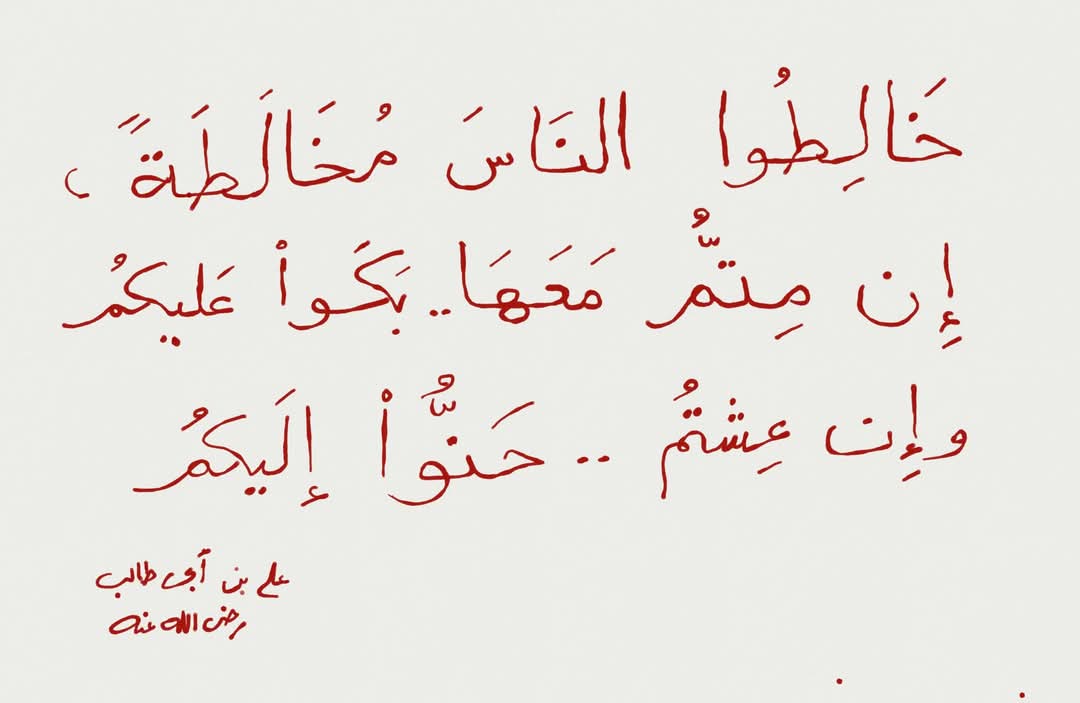 خَالِطُوا النَاسَ مُخَالَطَةً ،
إِن مِتُّمْ مَعَهَا .. بَكَواْ عَلَيكُمُ
وإِن عِشتُمُ .. حَنُّواْ إِلَيكُمُ
علي بن أبي طالب
رضي الله عنه